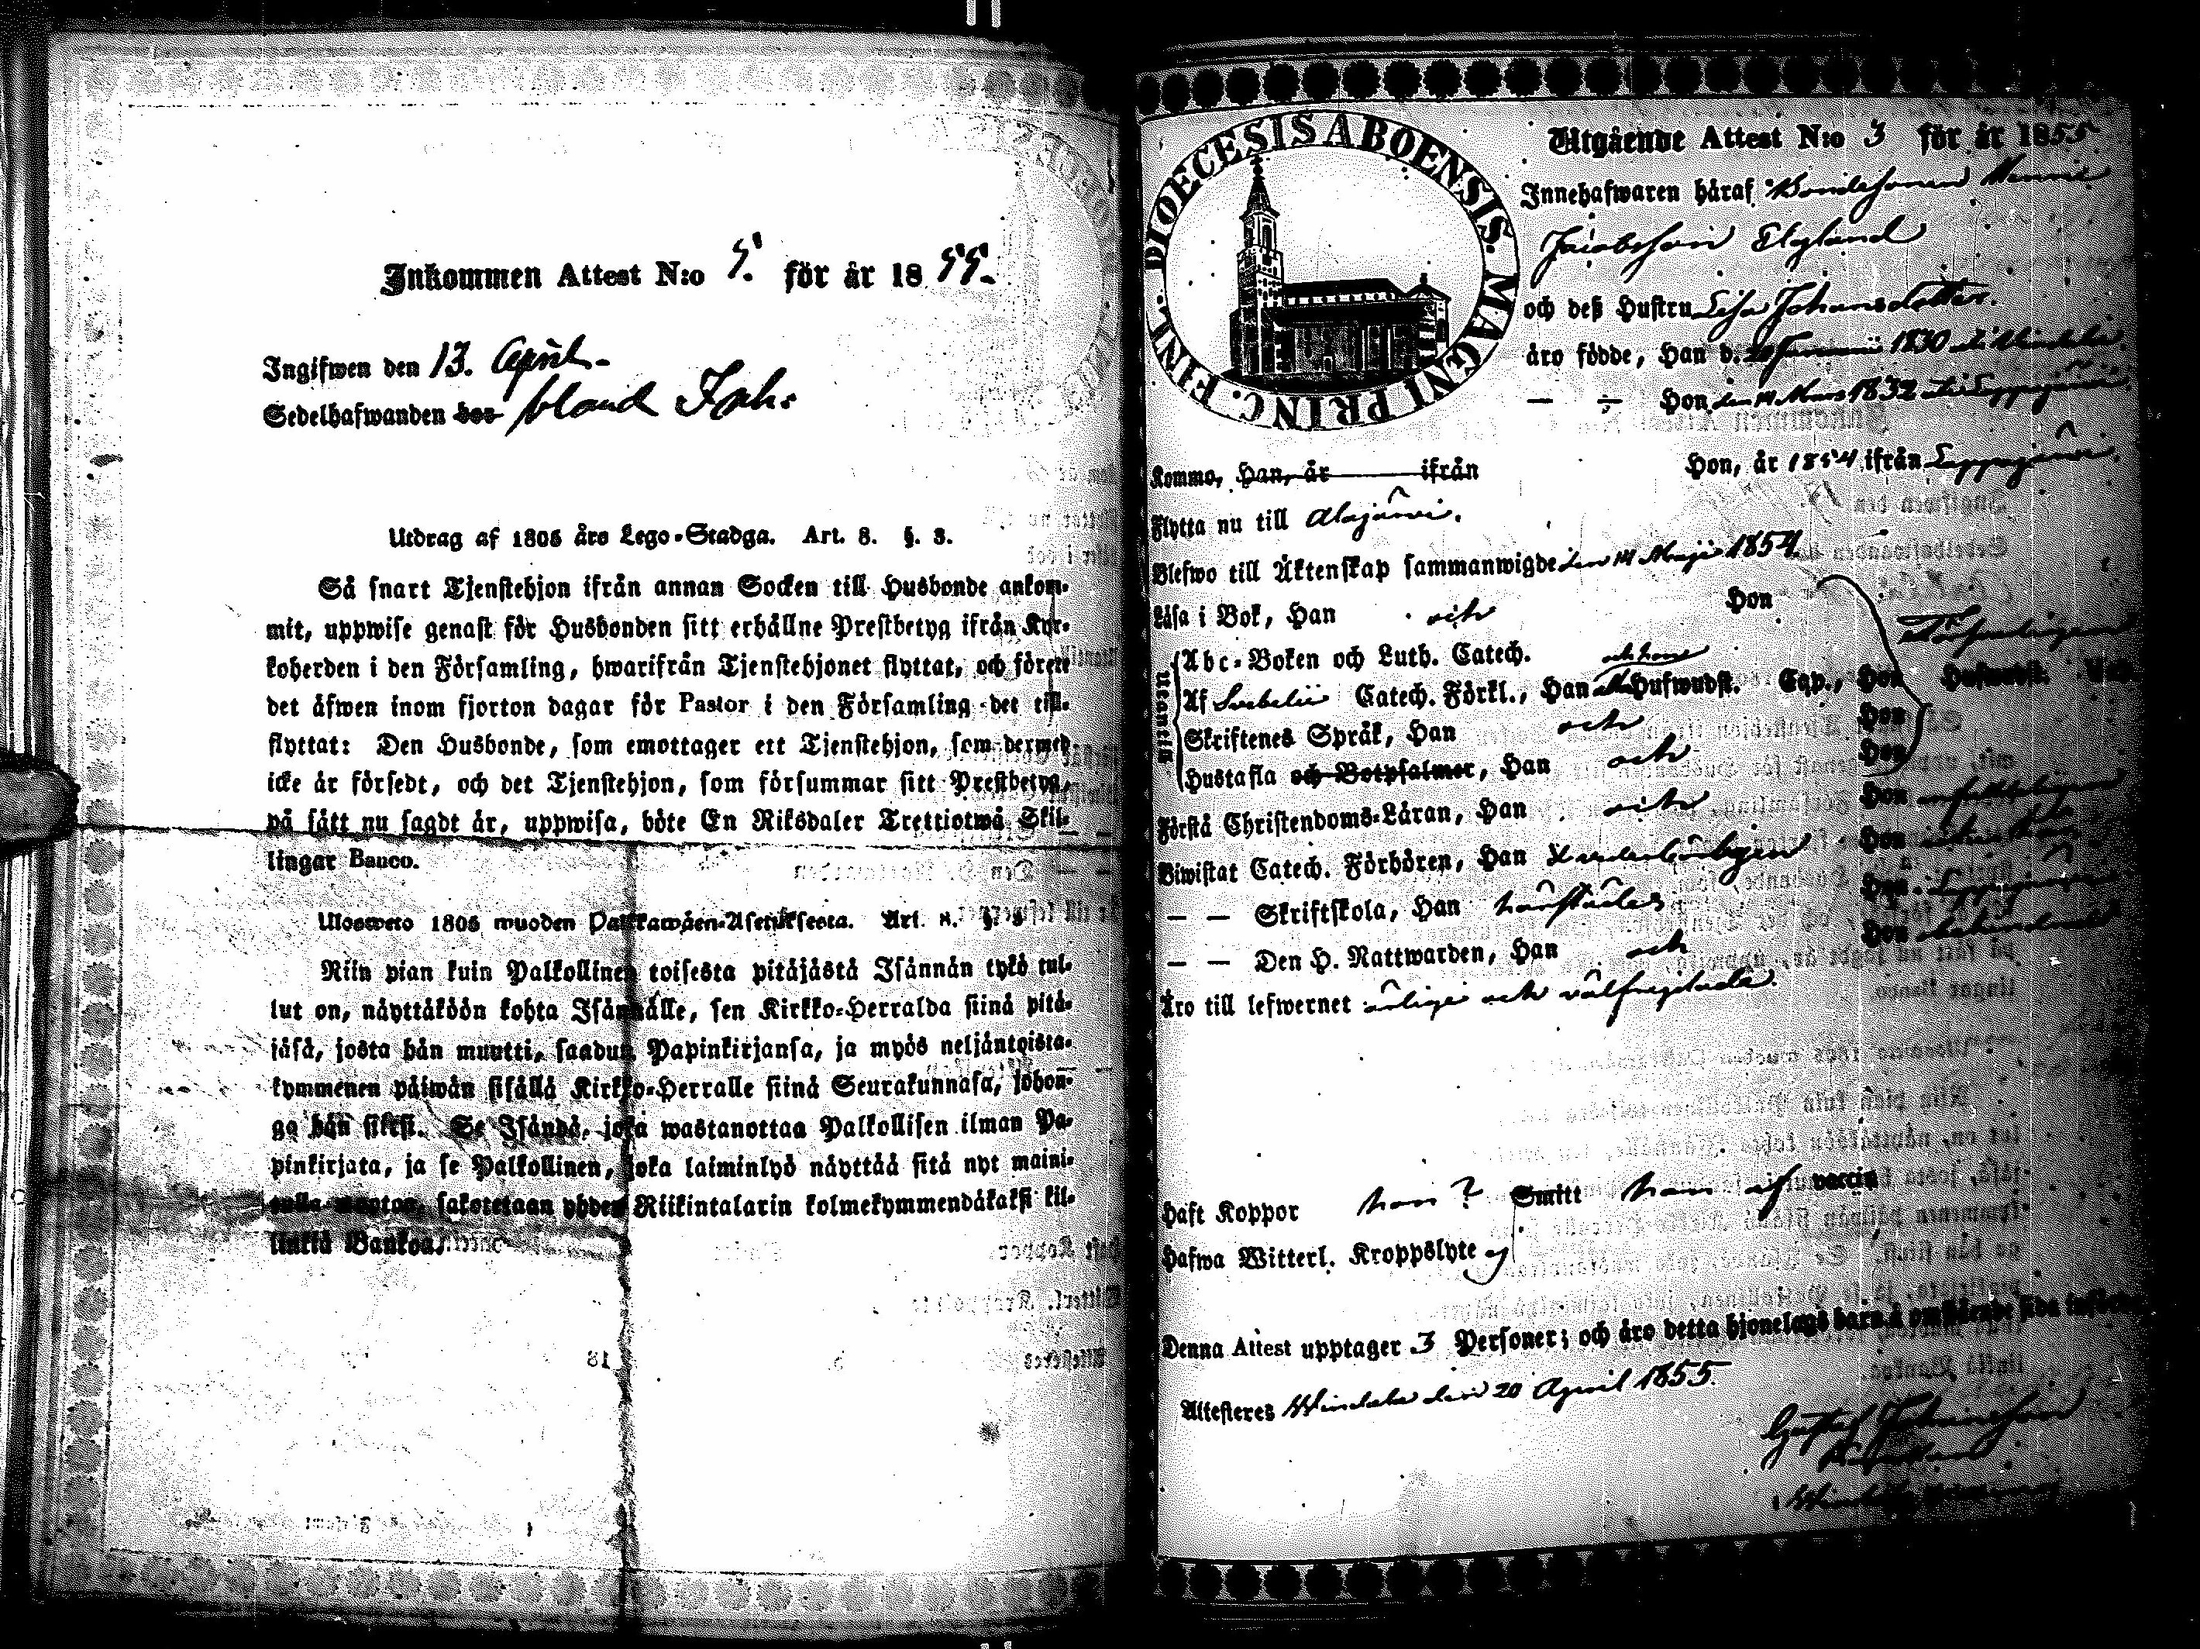 Inkommen Attest N:o 5. för år 1855.
Ingifwen den 13. April.
Sedelhafwanden hos
Utdrag af 1805 års Lego-Stadga. Art. 8. §. 3.
Så snart Tjenstehjon ifrån annan Socken till Husbonde ankom-
mit, uppwise genast för Husbonden sitt erhållne Prestbetyg ifrån Kyr-
koherden i den Församling, hwarifrån Tjenstehjonet flyttat, och förete
det äfwen inom fjorton dagar för Pastor i den Församling det till-
flyttat: Den Husbonde, som emottager ett Tjenstehjon, som dermed
icke är försedt, och det Tjenstehjon, som försummar sitt Prestbetyg,
på sätt nu sagdt är, uppwisa, böte En Riksdaler Trettiotwå Skil-
lingar Banco.
Ulosweto 1805 wuoden Palkkawäen-Asetuksesta. Art. 8. §. 3
Niin pian kuin Palkollinen toisesta pitäjästä Isännän tykö tul-
lut on, näyttäköön kohta Isännälle, sen Kirkko-Herralda siinä pitä-
jäsä, josta hän muutti, saadun Papinkirjansa, ja myös neljäntoista-
kymmenen päiwän sisällä Kirkko-Herralle siinä Seurakunnasa, johon-
ga hän siirsi. Se Isändä, joka wastanottaa Palkollisen ilman Pa-
pinkirjata, ja se Palkollinen, joka laiminlyö näyttää sitä nyt maini-
tulla muotoa, sakotetaan yhden Riikintalarin kolmekymmendäkaksi kil-
linkiä Bankoa.
DIOECESIS ABOENSIS. MAGNI PRINC. FINL.
Utgående Attest N:o 3 för år 1855
Innehafwaren häraf Bondesonen
Jacobsson Elgland
och deß Hustru Lisa Johansdotter.
äro födde, Han d. 20 1830 i Windala
— ÷ Hon den 14 Mars 1832 i Lappajärvi
Komma, Han, år ifrån Hon, år 1854 ifrån Lappajärvi.
Flytta nu till Alajärvi.
Blefwo till Äktenskap sammanwigde den 14 Maji 1854.
Läsa i Bok, Han och Hon
Utanläsa
Abc-Boken och Luth. Catech.
Af Svebelii Catech. Förkl., Han Hufwudst. Cap., Hon Hufwudst.
Skriftenes Språk, Han och Hon
Hustafla och Botpsalmer, Han och Hon
Förstå Christendoms-Läran, Han och Hon
Biwistat Catech. Förhören, Han Hon
— — Skriftskola, Han härstädes Hon Lappajärvi
— — Den H. Nattwarden, Han och Hon
Äro till lefwernet ärliga och välfrejdade.
Haft Koppor han ? Smitt han af vaccin
Hafwa Witterl. Kroppslyte ej
Denna Attest upptager 3 Personer; och äro detta hjonelags barn å omstående sida
Attesteres Windala den 20 April 1855.
Gustaf